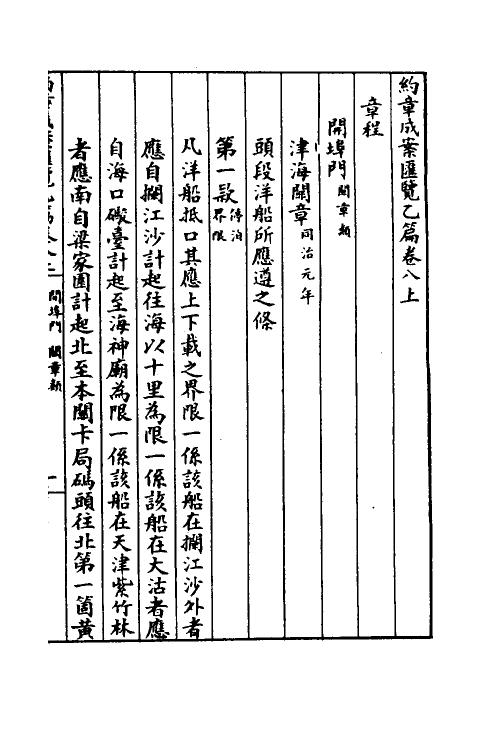 約章成案匯覽乙篇卷八上
章程
開埠門 關章類
津海關章 同治元年
頭段洋船所應遵之條
第一款 停泊界限
凡洋船抵口其應上下載之界限一係該船在攔江沙外者
應自攔江沙計起往海以十里為限一係該船在大沽者應
自海口礮臺計起至海神廟為限一係該船在天津紫竹林
者應南自梁家園計起北至本關卡局碼頭往北第一箇黃
開埠門 關章類 一